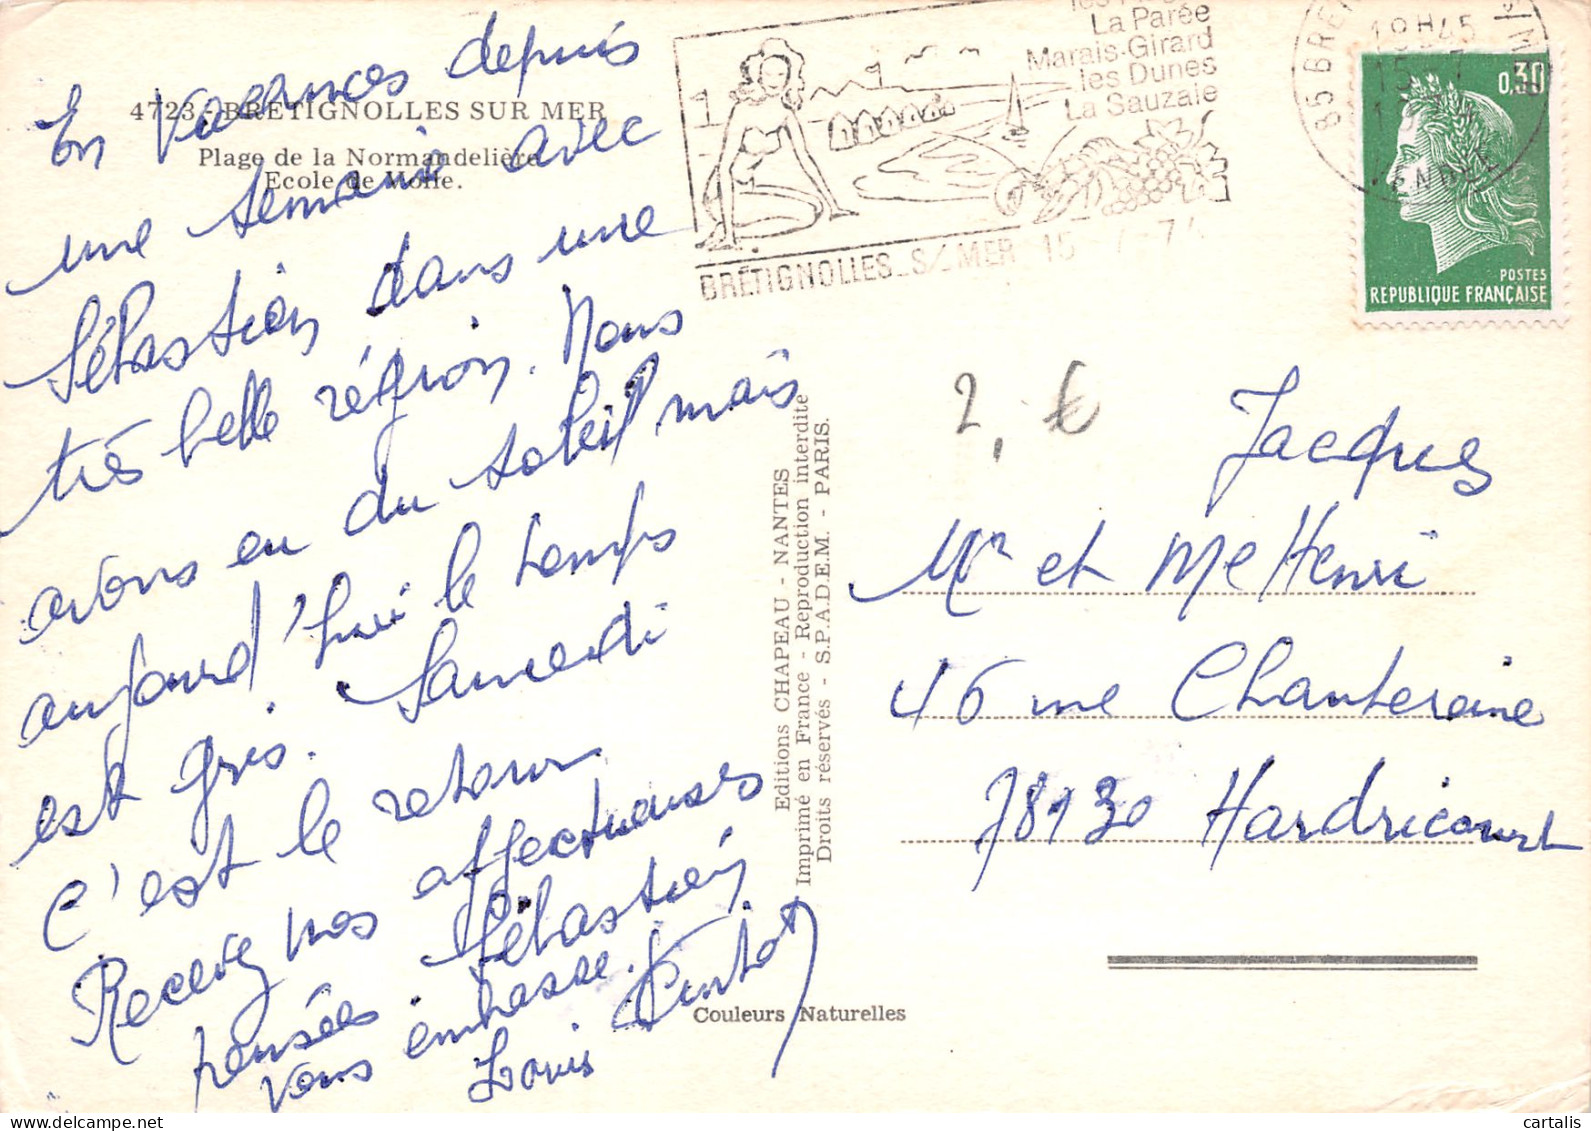 4723 - BRETIGNOLLES SUR MER
Plage de la Normandelière
Ecole de Voile.
En vacances depuis
une semaine avec
Sébastien dans une
très belle région. Nous
avons eu du soleil mais
aujourd'hui le temps
est gris. Samedi
c'est le retour
Recevez nos affectueuses
pensées. Sébastien
vous embrasse.
Louis
La Parée
Marais-Girard
les Dunes
La Sauzaie
BRÉTIGNOLLES S/ MER 15-7-74
18H45
15-7
0,30
POSTES
REPUBLIQUE FRANÇAISE
2,€
Editions CHAPEAU - NANTES
Imprimé en France - Reproduction interdite
Droits réservés - S.P.A.D.E.M. - PARIS.
Jacques
Mr et Me Henri
46 rue Chantereine
78130 Hardricourt
Couleurs Naturelles
cartalis